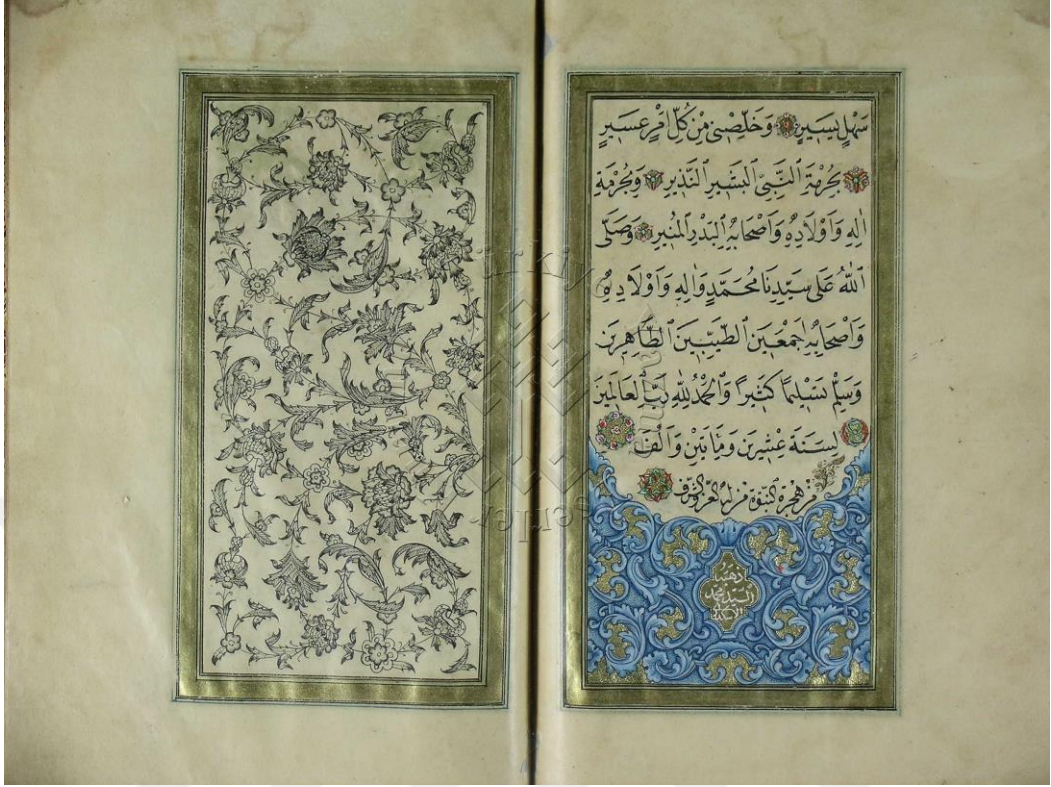 سَهْلٍ يَسِيرٍ وَخَلِّصْنِي مِنْ كُلِّ اَمْرٍ عَسِيرٍ
بِحُرْمَةِ ٱلنَّبِيِّ ٱلْبَشِيرِ ٱلنَّذِيرِ وَبِحُرْمَةِ
اٰلِهِ وَاَوْلَادِهِ وَاَصْحَابِهِ ٱلْبَدْرِ ٱلْمُنِيرِ وَصَلَّى
ٱللّٰهُ عَلٰى سَيِّدِنَا مُحَمَّدٍ وَاٰلِهِ وَاَوْلَادِهِ
وَاَصْحَابِهِ اَجْمَعِينَ ٱلطَّيِّبِينَ ٱلطَّاهِرِينَ
وَسَلِّمْ تَسْلِيمًا كَثِيرًا وَٱلْحَمْدُ لِلّٰهِ رَبِّ ٱلْعَالَمِينَ
لِسَنَةِ عِشْرِينَ وَمِاَتَيْنِ وَاَلْفٍ
من هجرة النبوة من له العز والشرف
ذهبه
السيد محمد